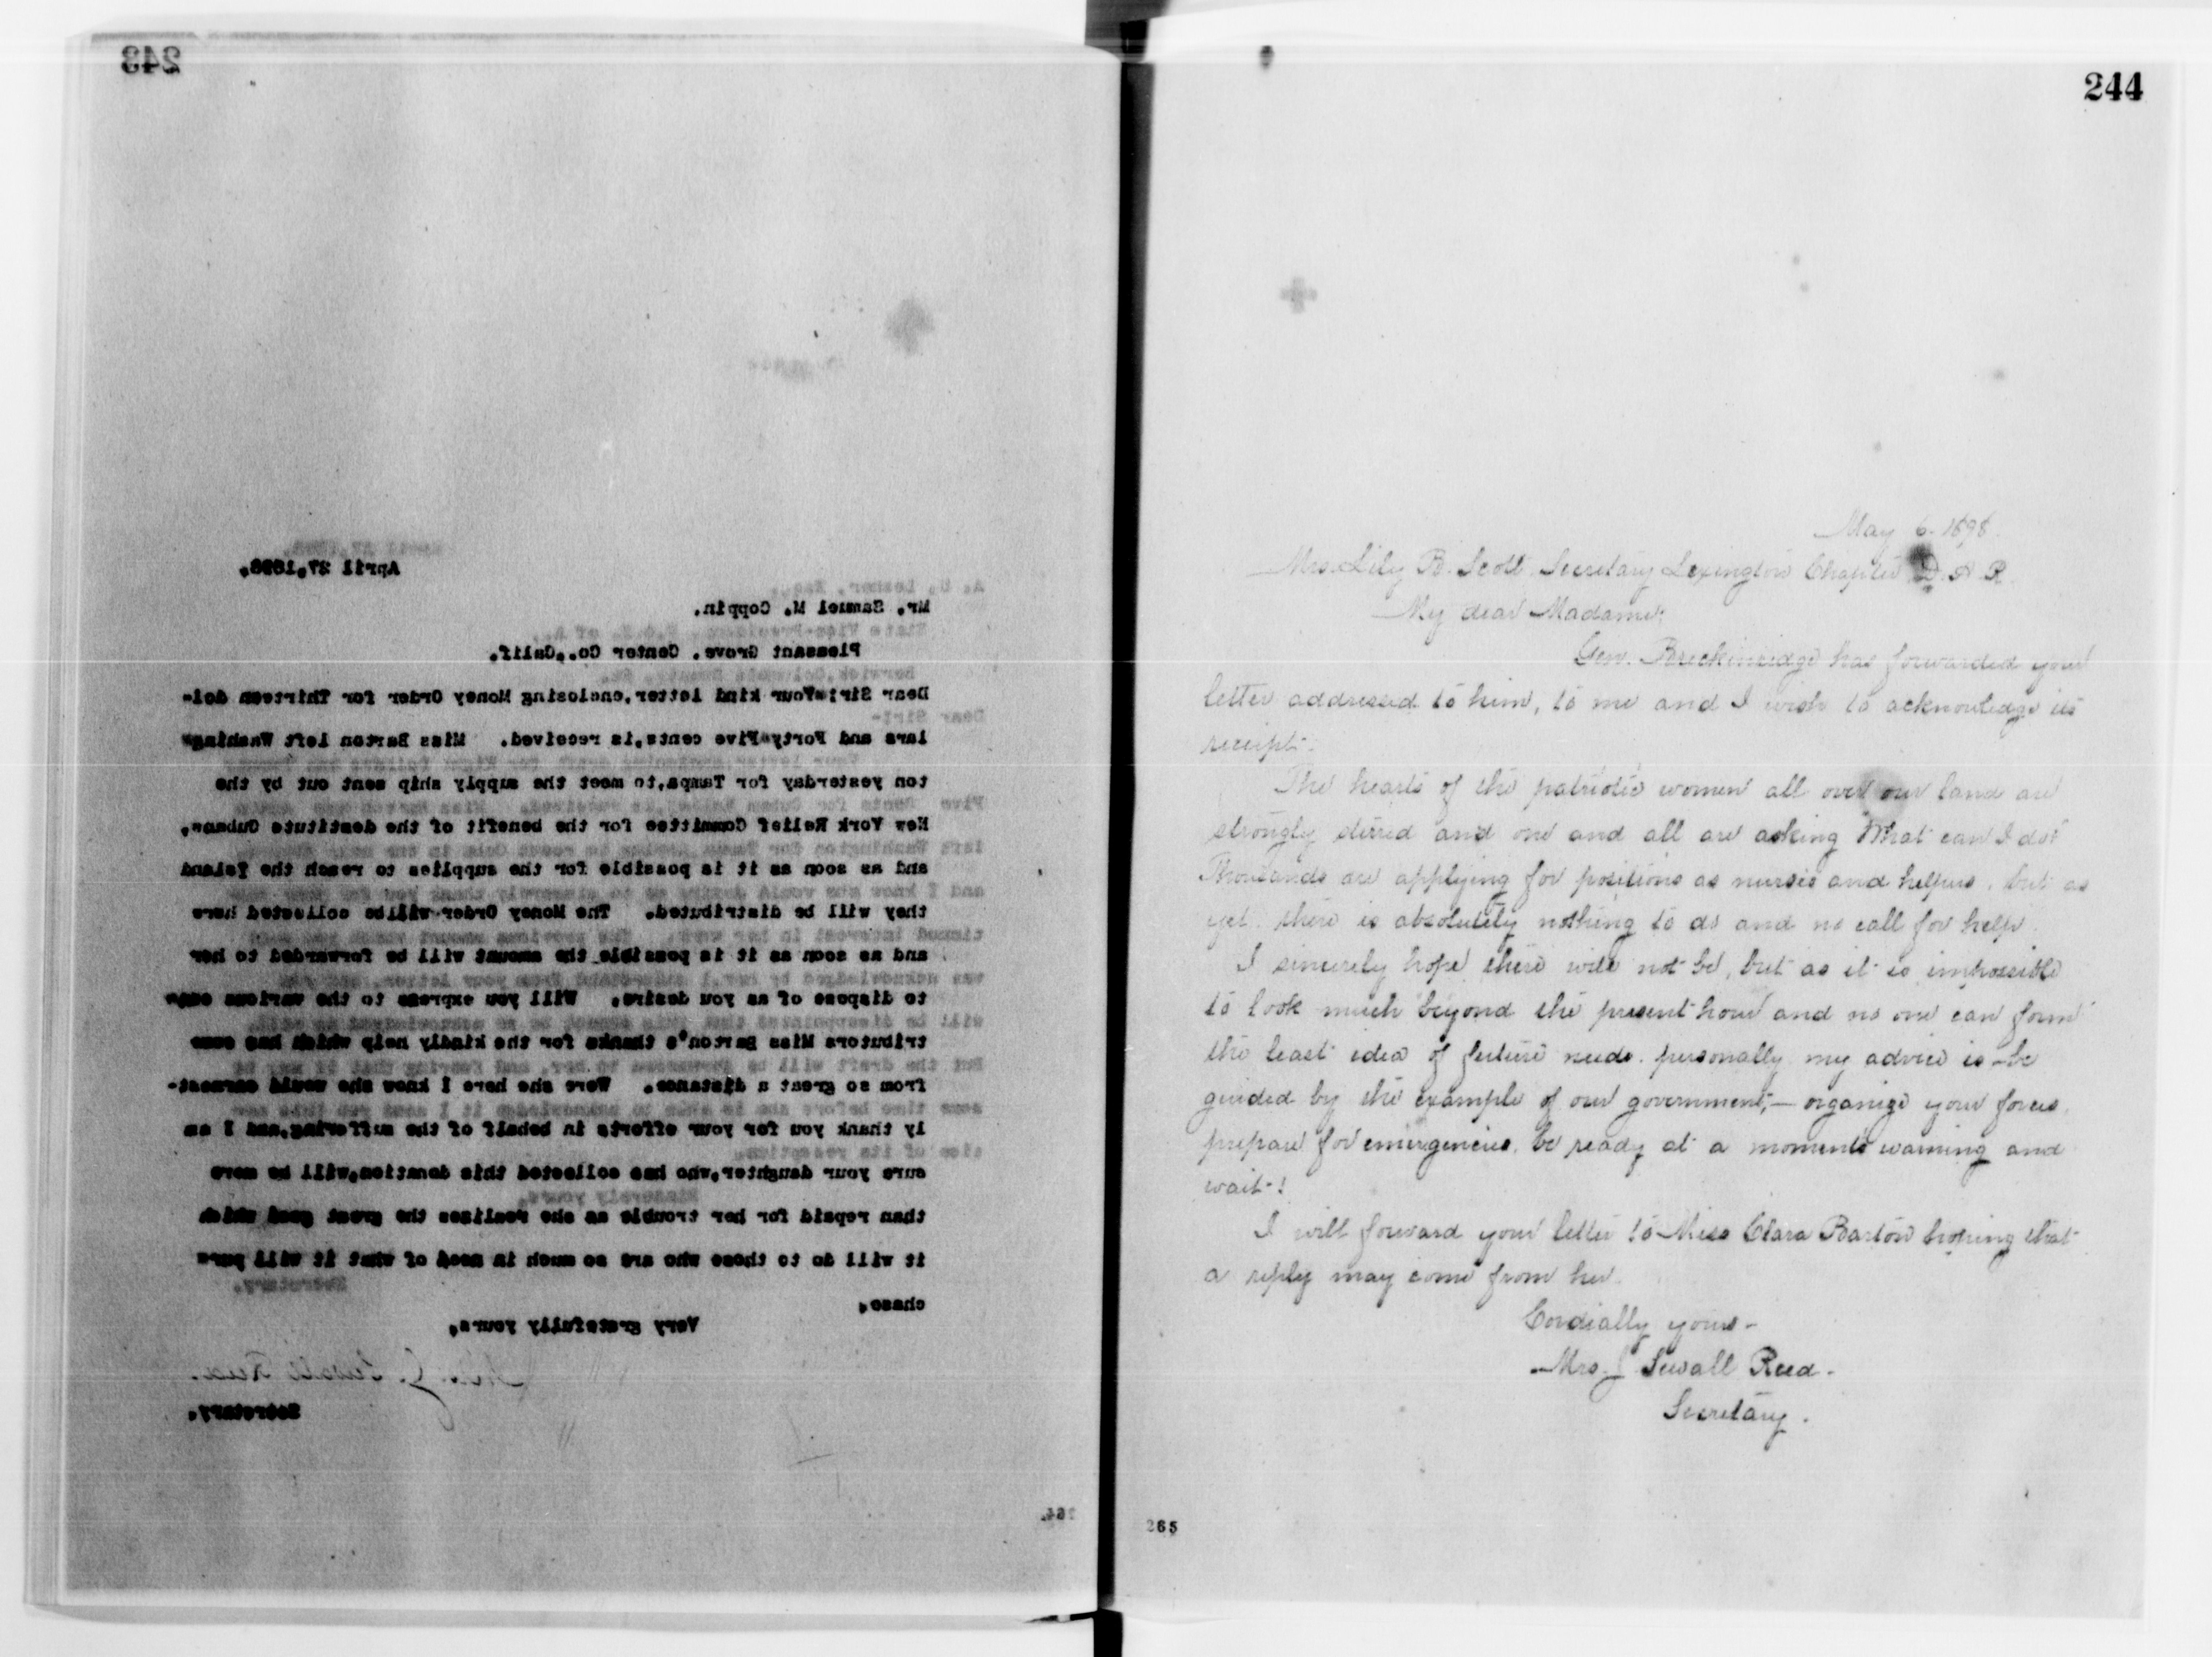 243
April 27,1898.
Mr. Samuel M. Coppin.
Pleasant Grove. Center Co.,Calif.
Dear Sir:-Your kind letter,enclosing Money Order for Thirteen dol-
lars and Forty-Five cents,is received. Miss Barton left Washing-
ton yesterday for Tampa,to meet the supply ship sent out by the
New York Relief Committee for the benefit of the destitute Cubans,
and as soon as it is possible for the supplies to reach the Island
they will be distributed. The Money Order will be collected here
and as soon as it is possible the amount will be forwarded to her
to dispose of as you desire. Will you express to the various con-
tributors Miss Barton's thanks for the kindly help which has come
from so great a distance. Were she here I know she would earnest-
ly thank you for your efforts in behalf of the suffering,and I am
sure your daughter,who has collected this donation,will be more
than repaid for her trouble as she realizes the great good which
it will do to those who are so much in need of what it will pur-
chase.
Very gratefully yours,
Mrs. J. Sewall Reed.
Secretary.
264
244
May 6. 1898.
Mrs. Lily B. Scott. Secretary Lexington Chapter D. A. R.
My dear Madame:
Gen. Breckinridge has forwarded your
letter addressed to him, to me and I wish to acknowledge its
receipt.
The hearts of the patriotic women all over our land are
strongly stirred and one and all are asking What can I do?
Thousands are applying for positions as nurses and helpers, but as
yet there is absolutely nothing to do and no call for help.
I sincerely hope there will not be, but as it is impossible
to look much beyond the present hour and no one can form
the least idea of future needs. personally my advice is - be
guided by the example of our government; — organize your forces,
prepare for emergencies, be ready at a moments warning and
wait!
I will forward your letter to Miss Clara Barton hoping that
a reply may come from her.
Cordially yours -
Mrs. J Sewall Reed.
Secretary.
265